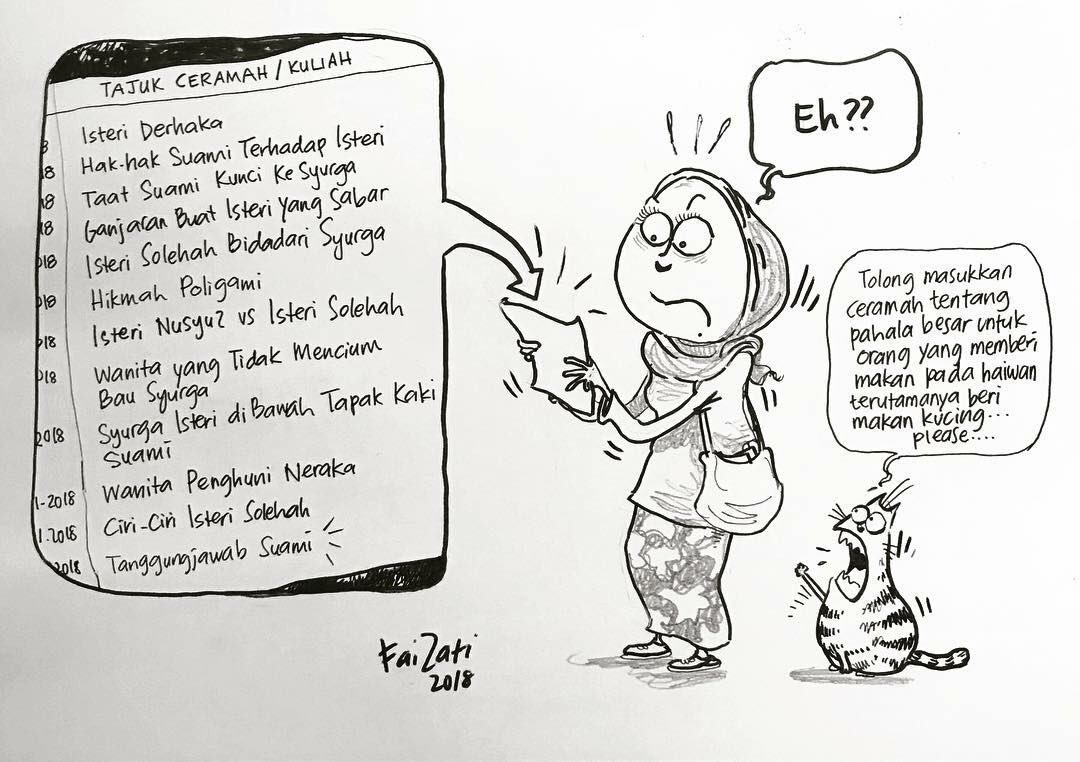 TAJUK CERAMAH / KULIAH
8 Isteri Derhaka
18 Hak-hak Suami Terhadap Isteri
18 Taat Suami Kunci Ke Syurga
18 Ganjaran Buat Isteri Yang Sabar
018 Isteri Solehah Bidadari Syurga
018 Hikmah Poligami
018 Isteri Nusyuz vs Isteri Solehah
018 Wanita yang Tidak Mencium
Bau Syurga
2018 Syurga Isteri di Bawah Tapak Kaki
Suami
1-2018 Wanita Penghuni Neraka
1.2018 Ciri-Ciri Isteri Solehah
2018 Tanggungjawab Suami
Eh??
Tolong masukkan
ceramah tentang
pahala besar untuk
orang yang memberi
makan pada haiwan
terutamanya beri
makan kucing...
please....
FaiZati
2018